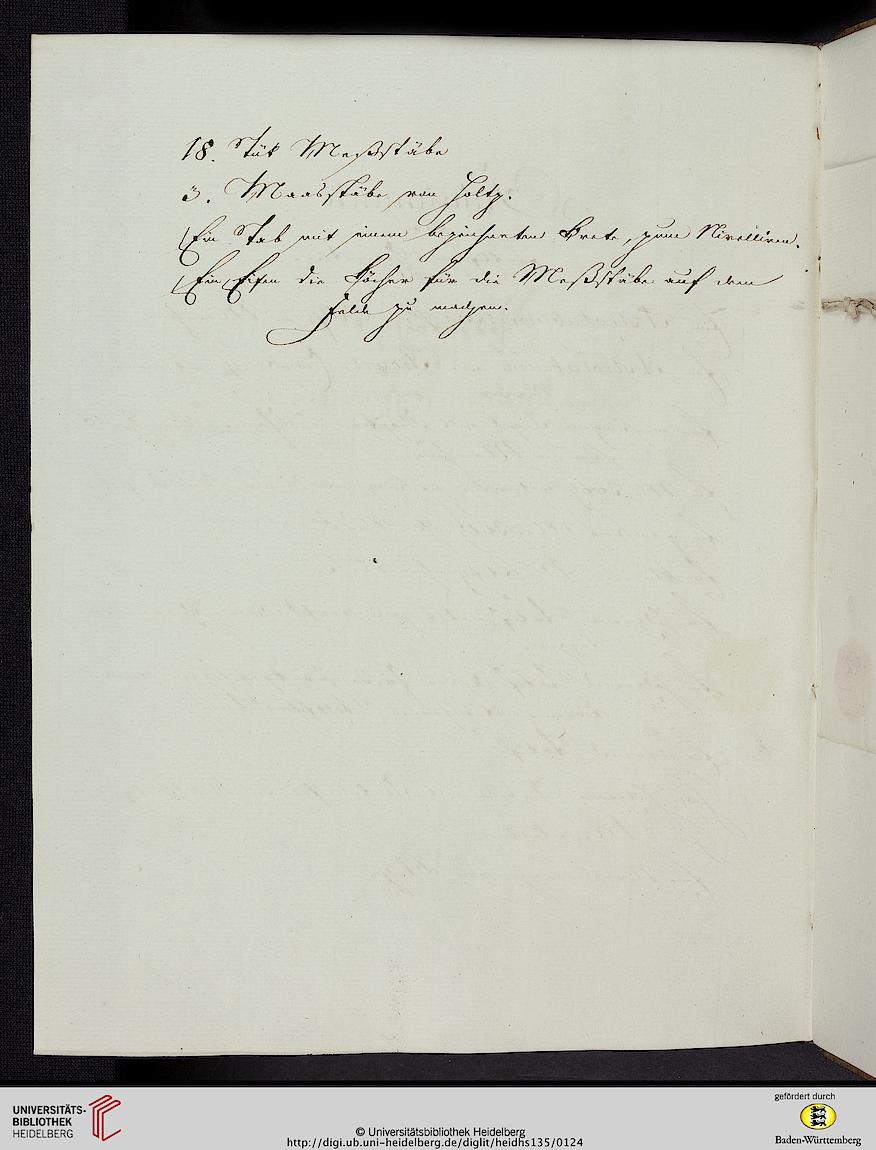 18. Stük Meßstäbe
3. Maasstäbe von Holtz.
Ein Stab mit einem bezeichneten Brete, zum Nivelliren.
Ein Eisen die Löcher für die Meßstäbe auf dem
Felde zu machen.
UNIVERSITÄTS-
BIBLIOTHEK
HEIDELBERG
© Universitätsbibliothek Heidelberg
http://digi.ub.uni-heidelberg.de/diglit/heidhs135/0124
gefördert durch
Baden-Württemberg